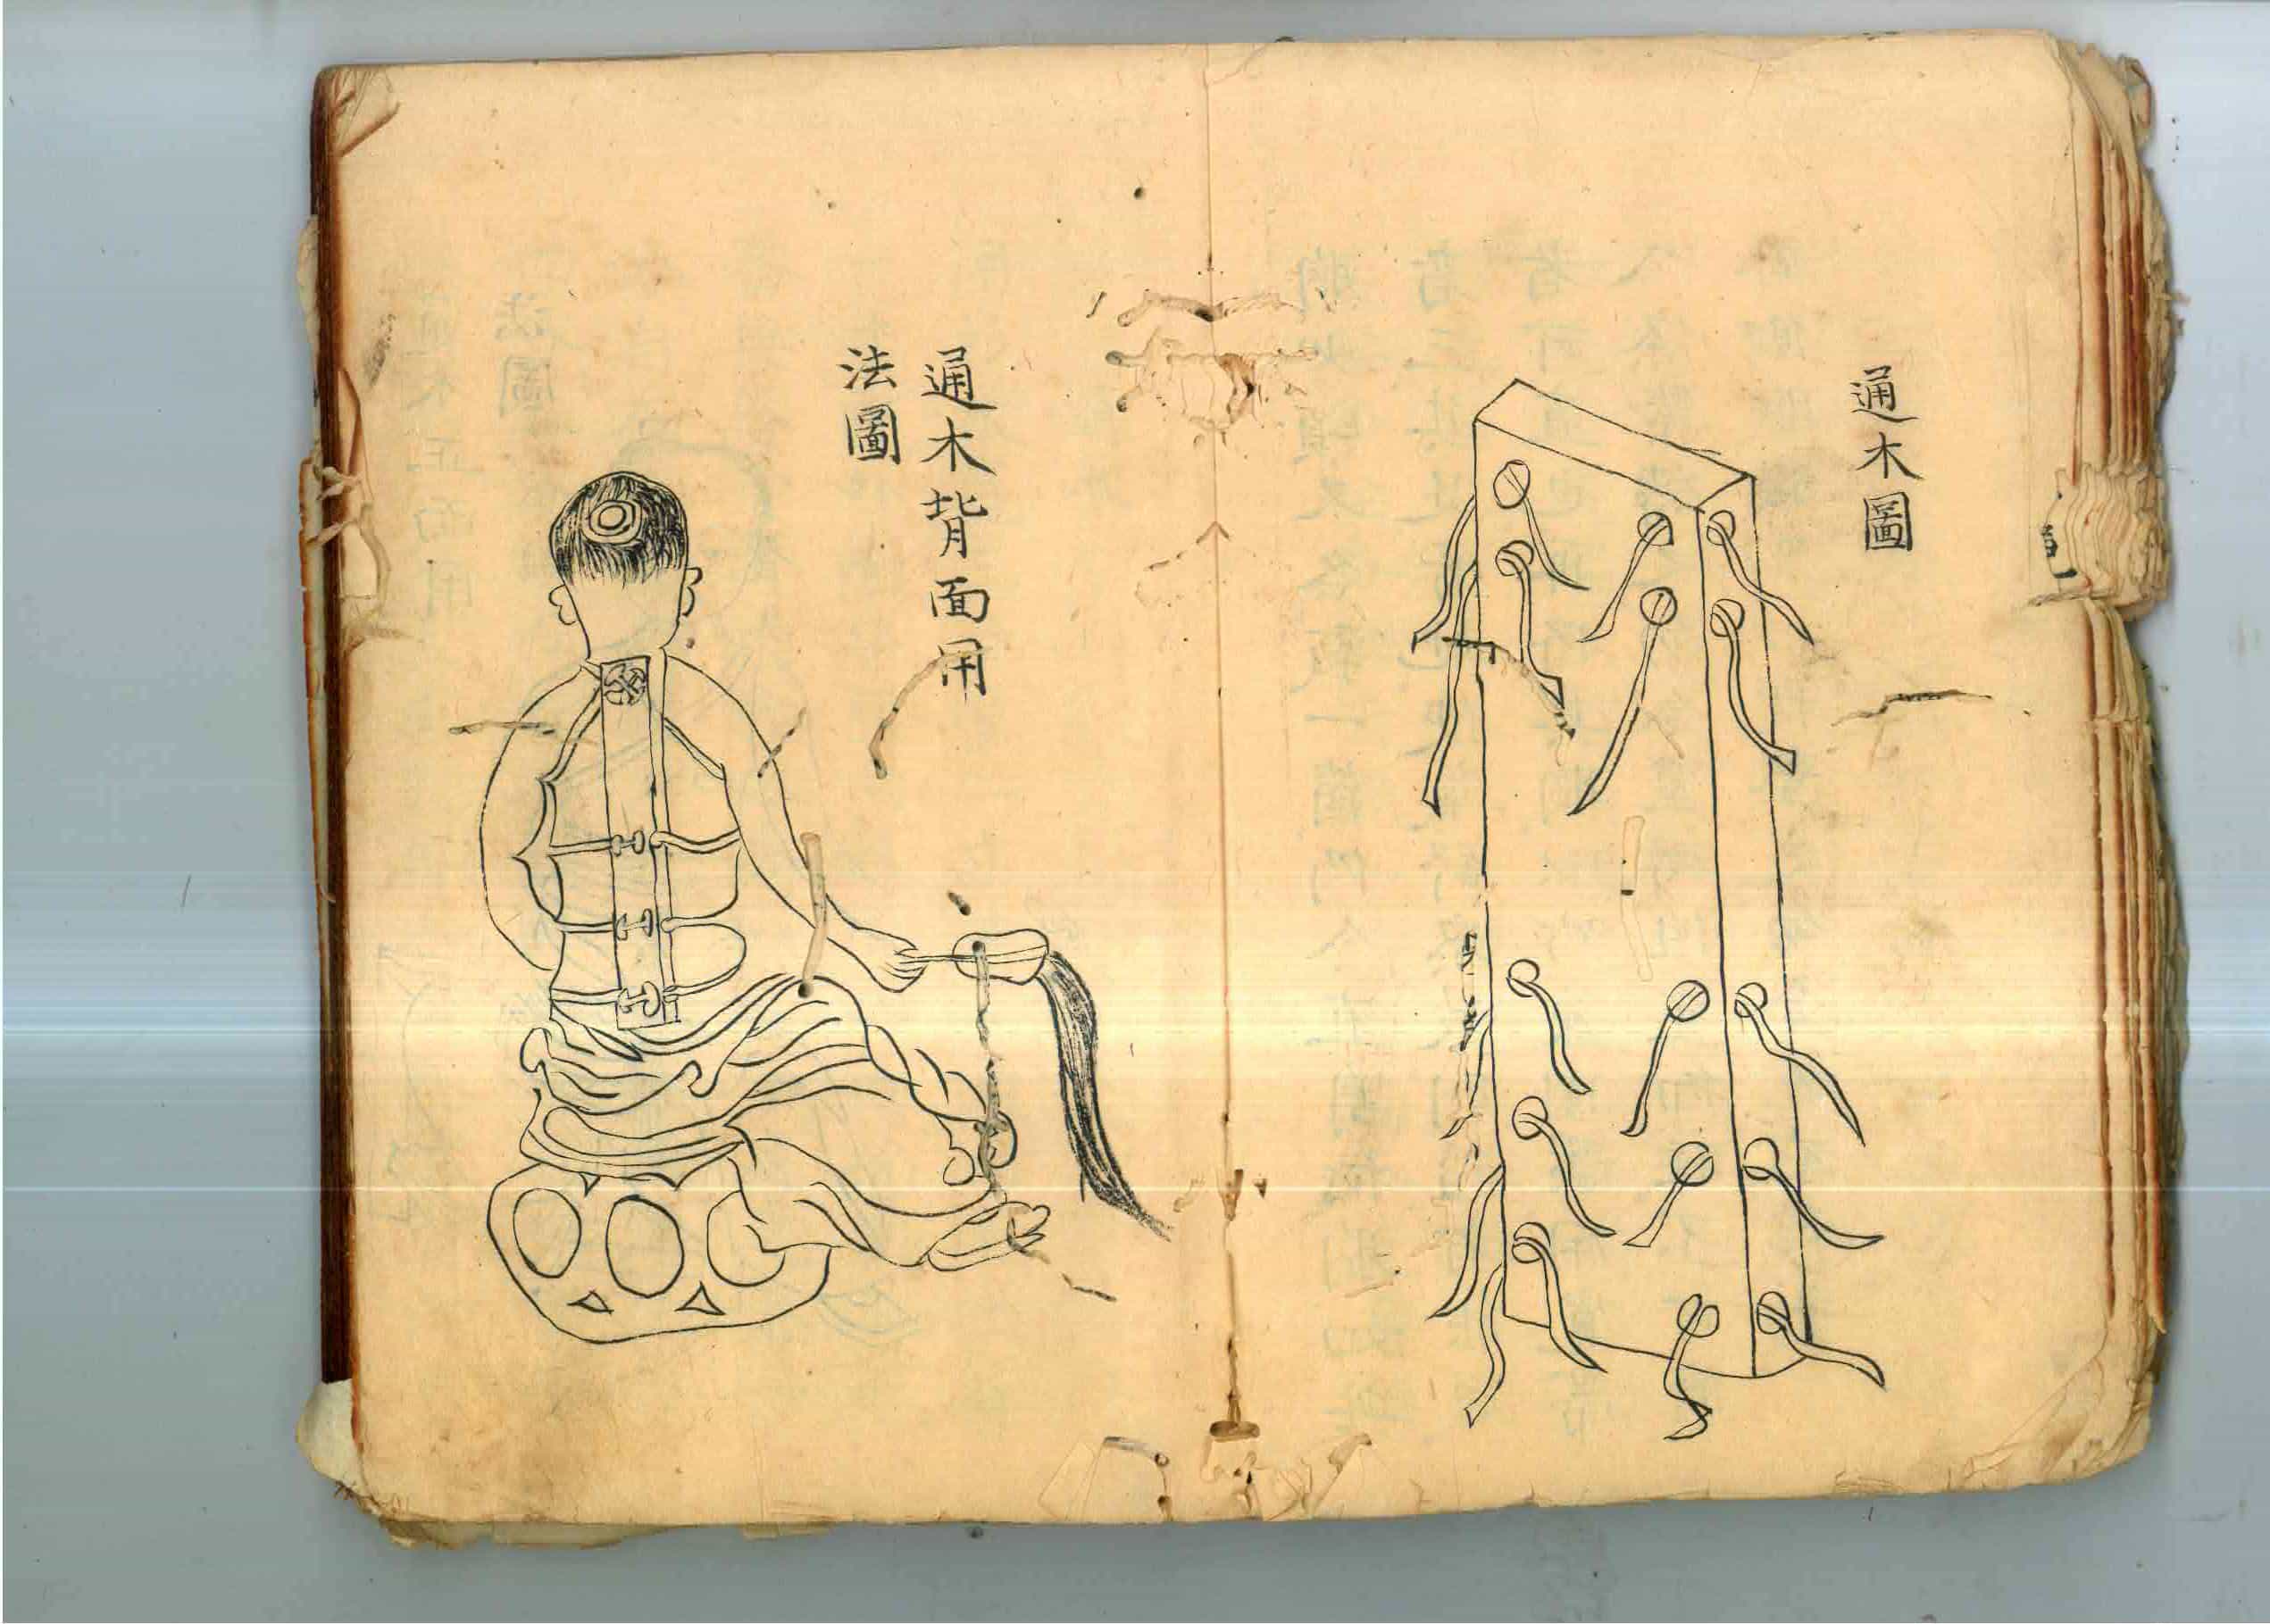 通木圖
通木背面用
法圖